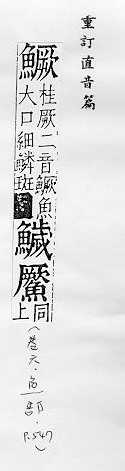 重訂直音篇
鱖 桂厥二音鱖魚
大口細鱗斑
鱥 𩹤 同
上
(卷六·魚部·
P.547)